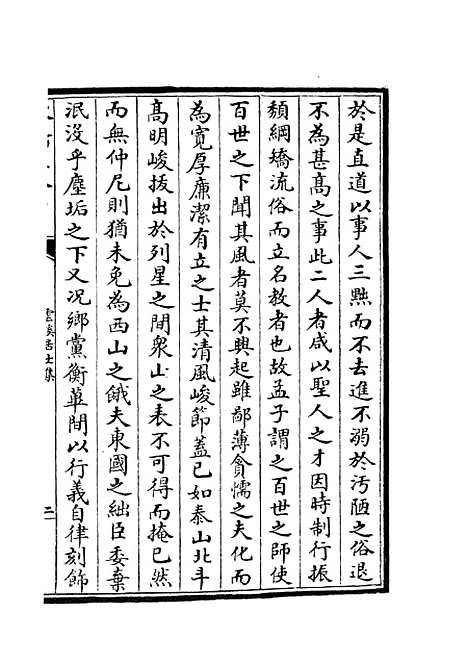 於是直道以事人三黜而不去進不溺於汚陋之俗退
不為甚髙之事此二人者咸以聖人之才因時制行振
頽綱矯流俗而立名教者也故孟子謂之百世之師使
百世之下聞其風者莫不興起雖鄙薄貪懦之夫化而
為寛厚廉潔有立之士其清風峻節蓋已如泰山北斗
髙明峻拔出於列星之間衆山之表不可得而掩已然
而無仲尼則猶未免為西山之餓夫東國之絀臣委棄
泯沒乎塵垢之下又况鄉黨衡蓽間以行義自律刻飾
雲溪居士集
二